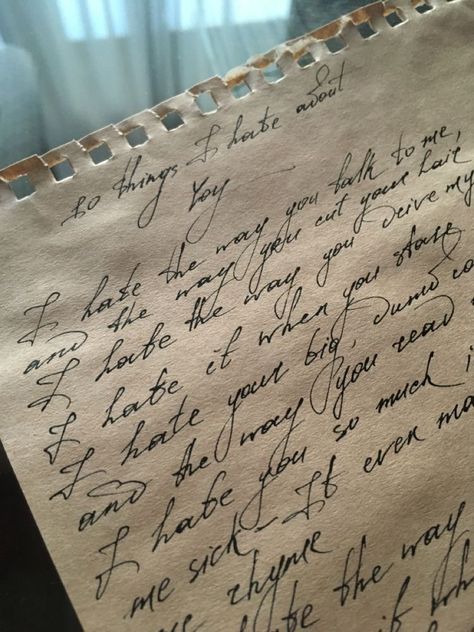 10 things I hate about
You
I hate the way you talk to me,
and the way you cut your hair
I hate the way you drive my
I hate it when you stare
I hate your big, dumb co
and the way you read
I hate you so much i
me sick - It even ma
me rhyme
hate the way
it wh